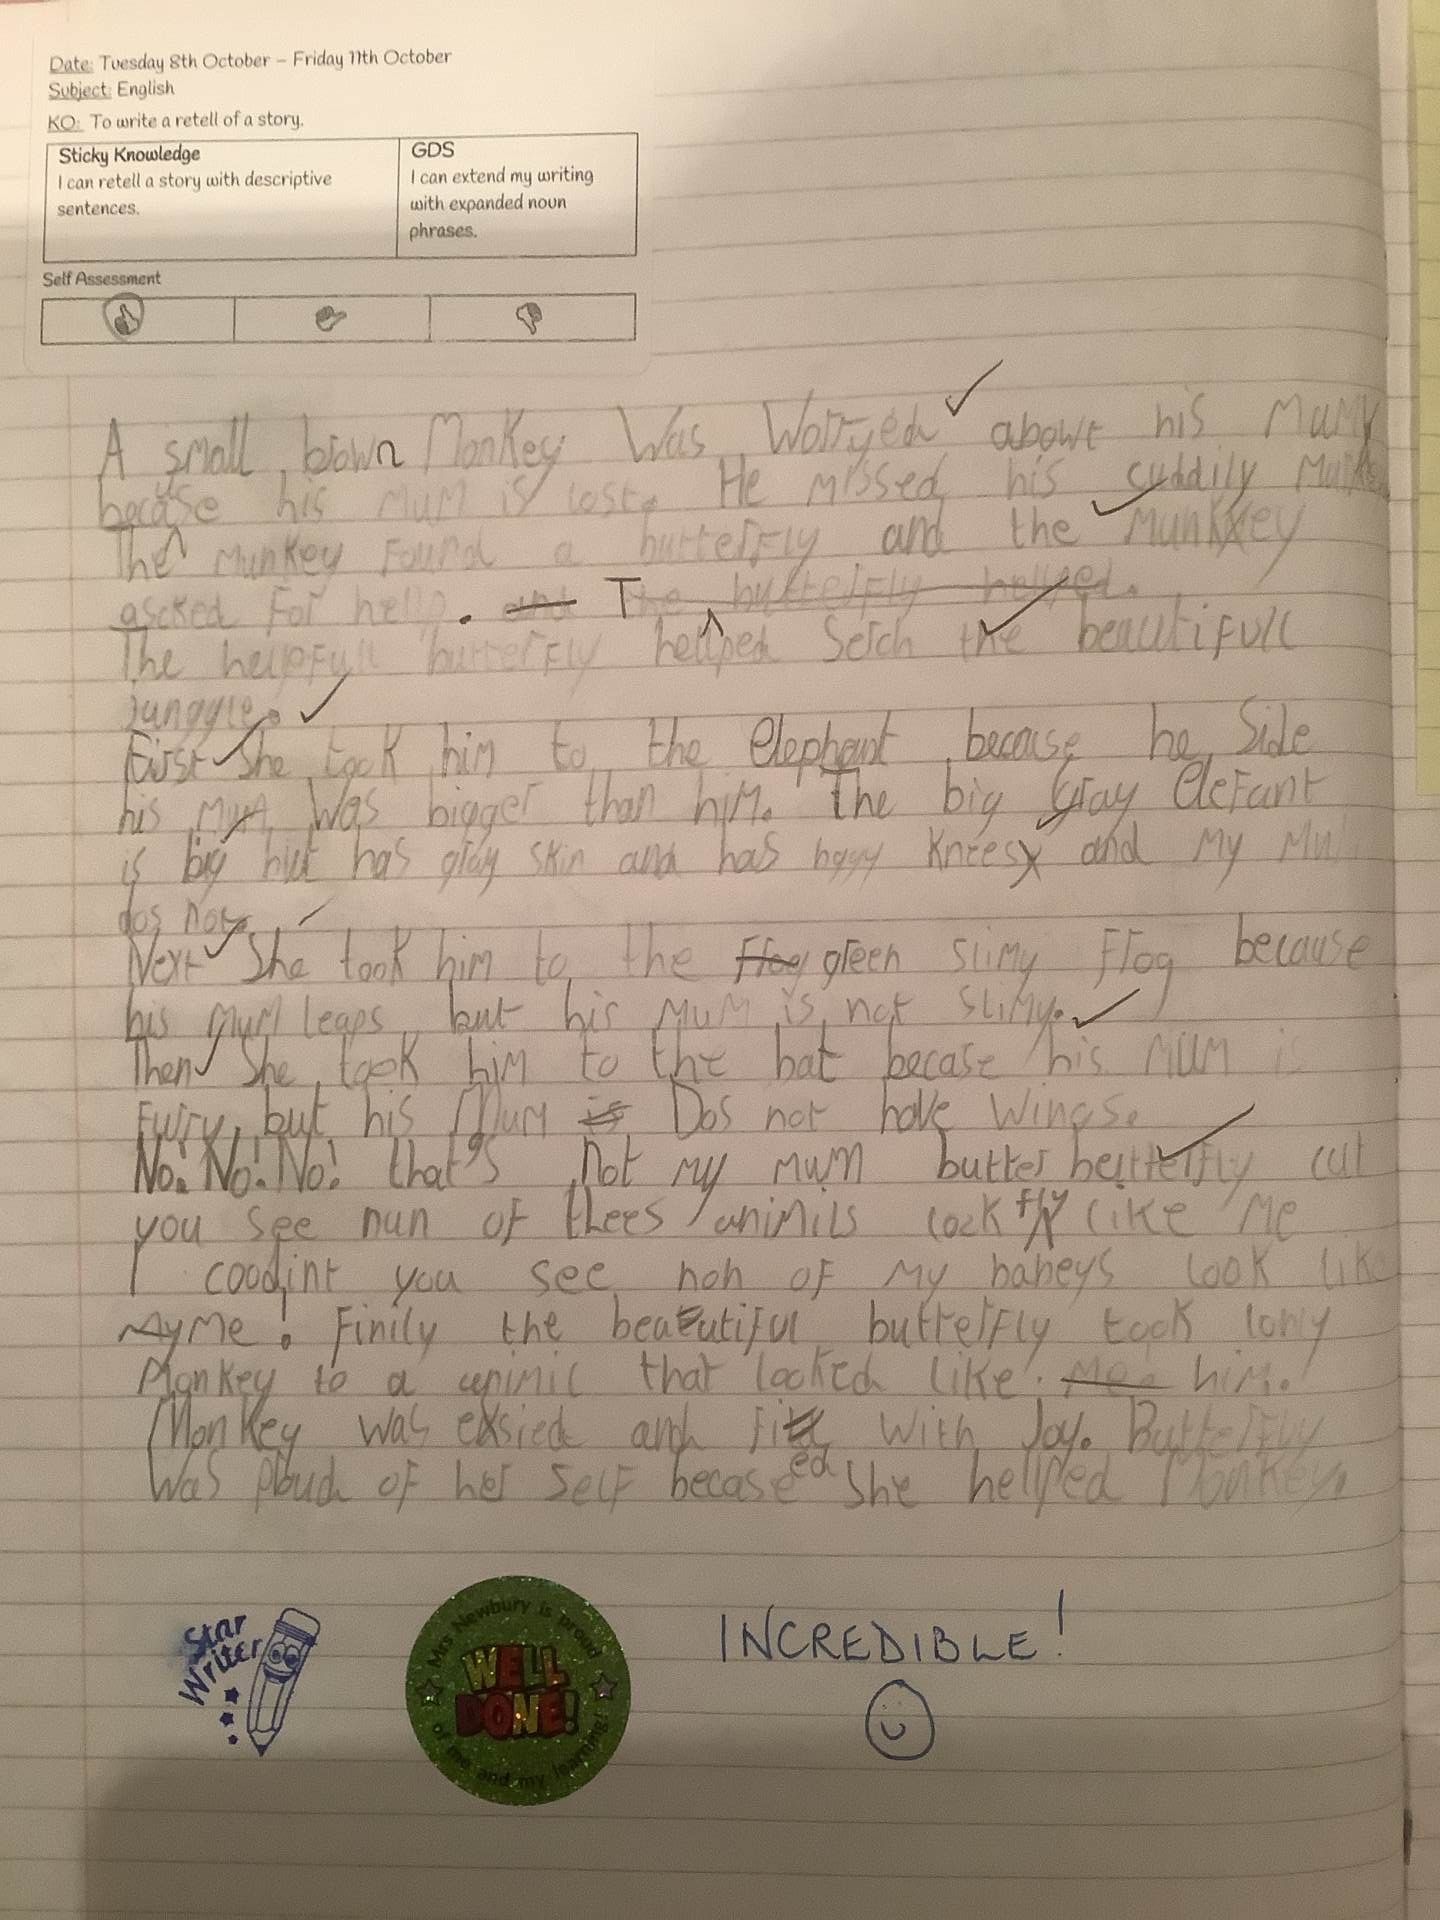 Date: Tuesday 8th October – Friday 11th October
Subject: English
KO: To write a retell of a story.
Sticky Knowledge
I can retell a story with descriptive
sentences.
GDS
I can extend my writing
with expanded noun
phrases.
Self Assessment
A small brown Monkey Was Worryed abowt his Mumy
becaus his MuM is lost. He missed his cuddily
The Munkey Found a butterFly and the Munkey
ascked For help. and The butterFly helped.
The helpFull butterFly hellped Serch the beautiFull
junggle.
First She took him to the elephant because he Side
his Mum Was bigger than hiM. The big gray eleFant
is big but has gray skin and has baggy kneesy and My Mum
dos not.
Next She took him to the frog green slimy Frog because
his MuM leaps but his MuM is not slimy.
Then She took him to the bat becase his MuM is
Furry but his Mum is Dos not have Wings.
No! No! No! that's not My Mum butter butterFly cut
you see nun of thees animils look fly like Me
I coodint you see non of My babeys look like
My Me! Finily the beautiFul butterFly took
Monkey to a animil that looked like Me. him.
Monkey Was exsied and Fill With Joy. ButterFly
Was ploud of her SelF becase ed She hellped Monkey.
Star
Writer
Mrs Newbury is proud
WELL
DONE!
of me and my learning!
INCREDIBLE!